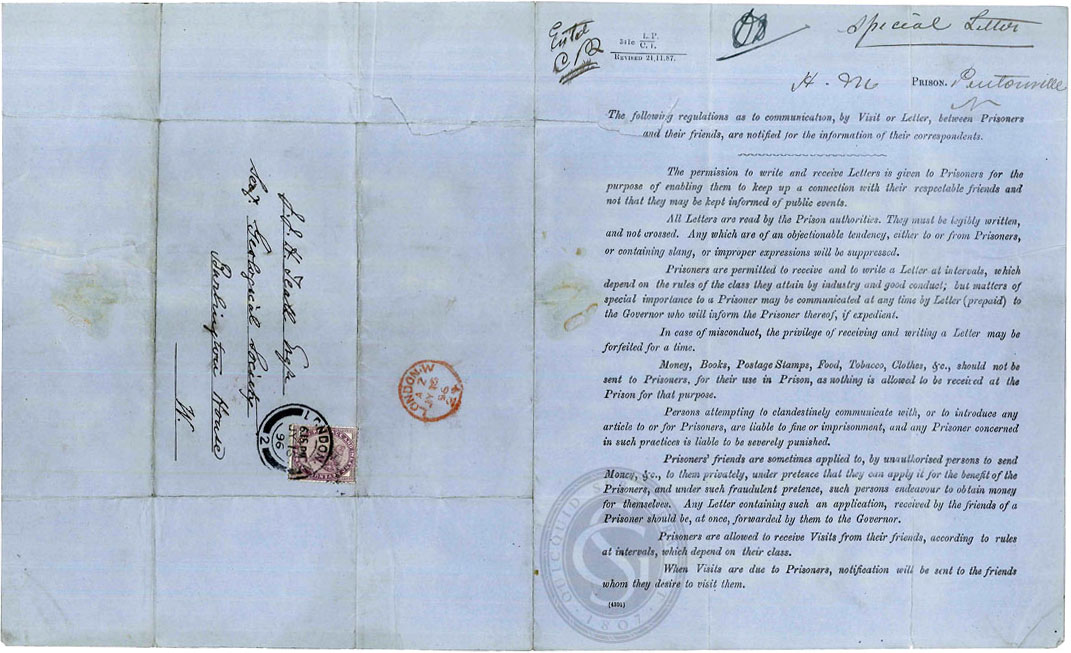 J.J.H. Teall Esqr
Secy. Geological Society
Burlington House
W.
LONDON
6.15 PM
JY 15
96
2
LONDON·W
A Z
JY 16
96
Special Letter
L.P.
C.1.
REVISED 21,11,87.
H. M PRISON. Pentonville
N
The following regulations as to communication, by Visit or Letter, between Prisoners
and their friends, are notified for the information of their correspondents.
The permission to write and receive Letters is given to Prisoners for the
purpose of enabling them to keep up a connection with their respectable friends and
not that they may be kept informed of public events.
All Letters are read by the Prison authorities. They must be legibly written,
and not crossed. Any which are of an objectionable tendency, either to or from Prisoners,
or containing slang, or improper expressions will be suppressed.
Prisoners are permitted to receive and to write a Letter at intervals, which
depend on the rules of the class they attain by industry and good conduct; but matters of
special importance to a Prisoner may be communicated at any time by Letter (prepaid) to
the Governor who will inform the Prisoner thereof, if expedient.
In case of misconduct, the privilege of receiving and writing a Letter may be
forfeited for a time.
Money, Books, Postage Stamps, Food, Tobacco, Clothes, &c., should not be
sent to Prisoners, for their use in Prison, as nothing is allowed to be received at the
Prison for that purpose.
Persons attempting to clandestinely communicate with, or to introduce any
article to or for Prisoners, are liable to fine or imprisonment, and any Prisoner concerned
in such practices is liable to be severely punished.
Prisoners' friends are sometimes applied to, by unauthorised persons to send
Money, &c., to them privately, under pretence that they can apply it for the benefit of the
Prisoners, and under such fraudulent pretence, such persons endeavour to obtain money
for themselves. Any Letter containing such an application, received by the friends of a
Prisoner should be, at once, forwarded by them to the Governor.
Prisoners are allowed to receive Visits from their friends, according to rules
at intervals, which depend on their class.
When Visits are due to Prisoners, notification will be sent to the friends
whom they desire to visit them.
(4391)
1807